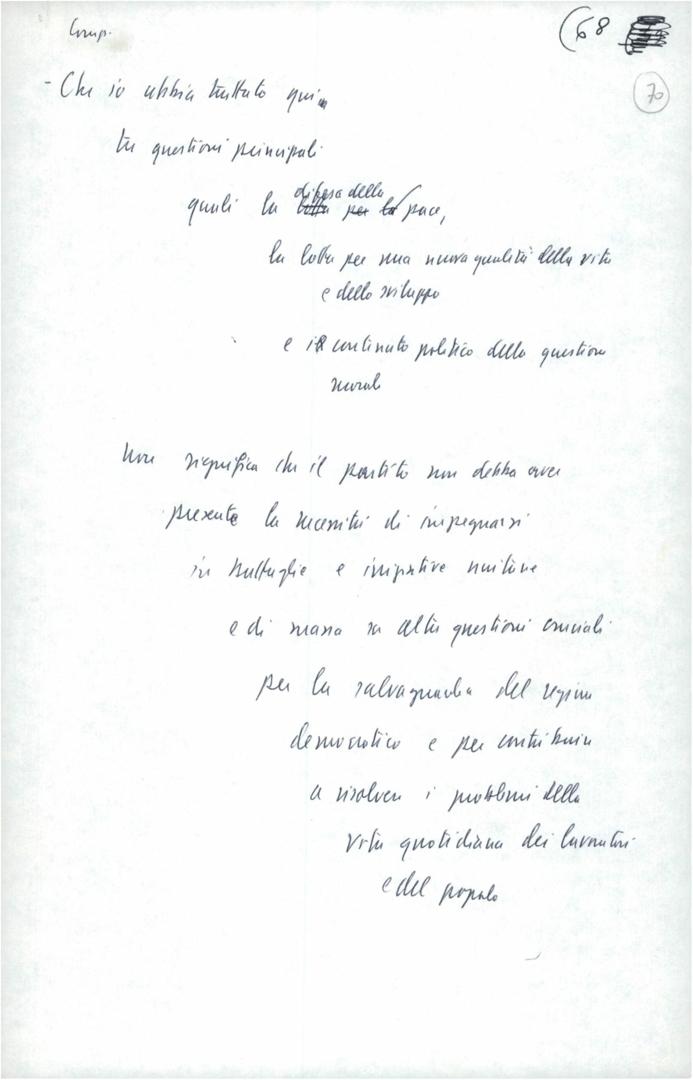 Comp.
(68
70
- Che io abbia trattato qui
tre questioni principali
quali la difesa della
lotta per la pace,
la lotta per una nuova qualità della vita
e dello sviluppo
e il contenuto politico della questione
morale
non significa che il partito non debba aver
presente la necessità di impegnarsi
in battaglie e iniziative unitarie
e di massa su altre questioni cruciali
per la salvaguardia del regime
democratico e per contribuire
a risolvere i problemi della
vita quotidiana dei lavoratori
e del popolo